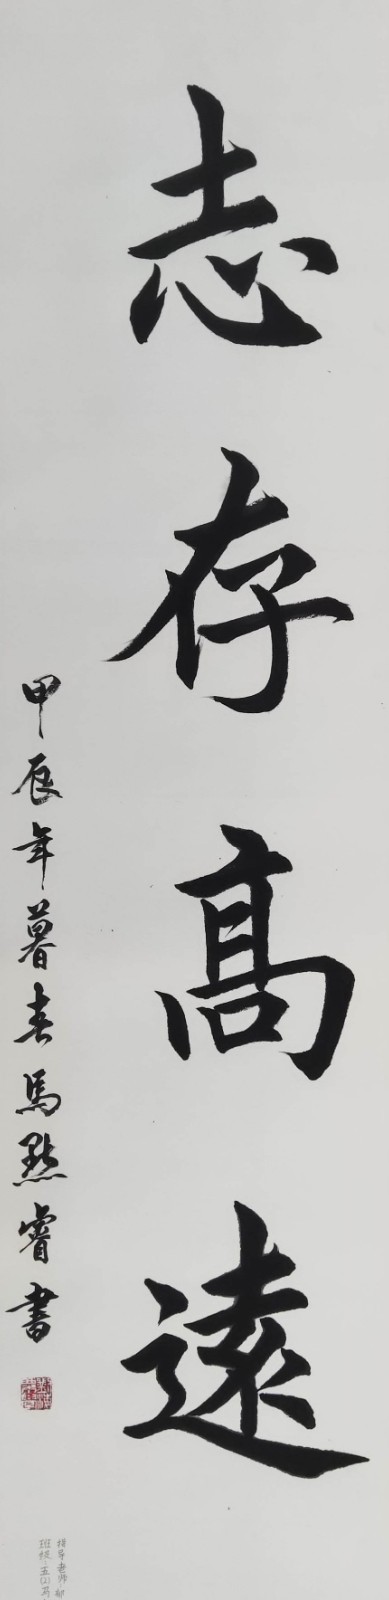 志存高遠
甲辰年暮春馬默睿書
指导老师
班级:五(2)